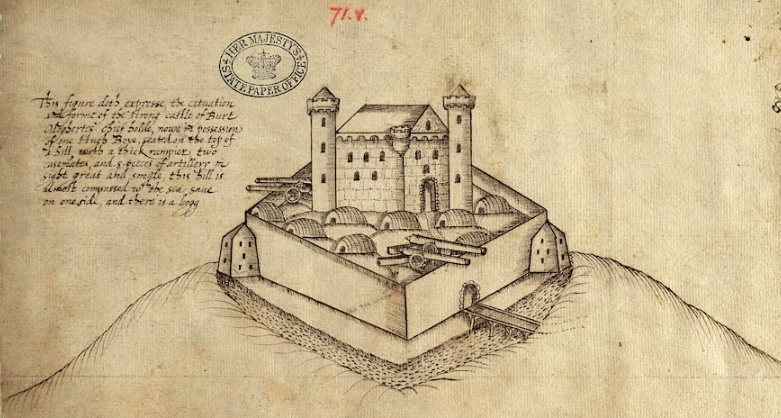 71.v.
HER MAJESTY'S
STATE PAPER OFFICE
This figure doth expresse the cituation
and forme of the strong castle of Burt
Odoghertes chief holde, nowe in possession
of one Hugh Boye, seated on the top of
a hill, with a thick rampier, two
casemates, and 5 peeces of artillery in
sight great and smale, this hill is
almost compassed wth the sea, save
on one side, and there is a bogg